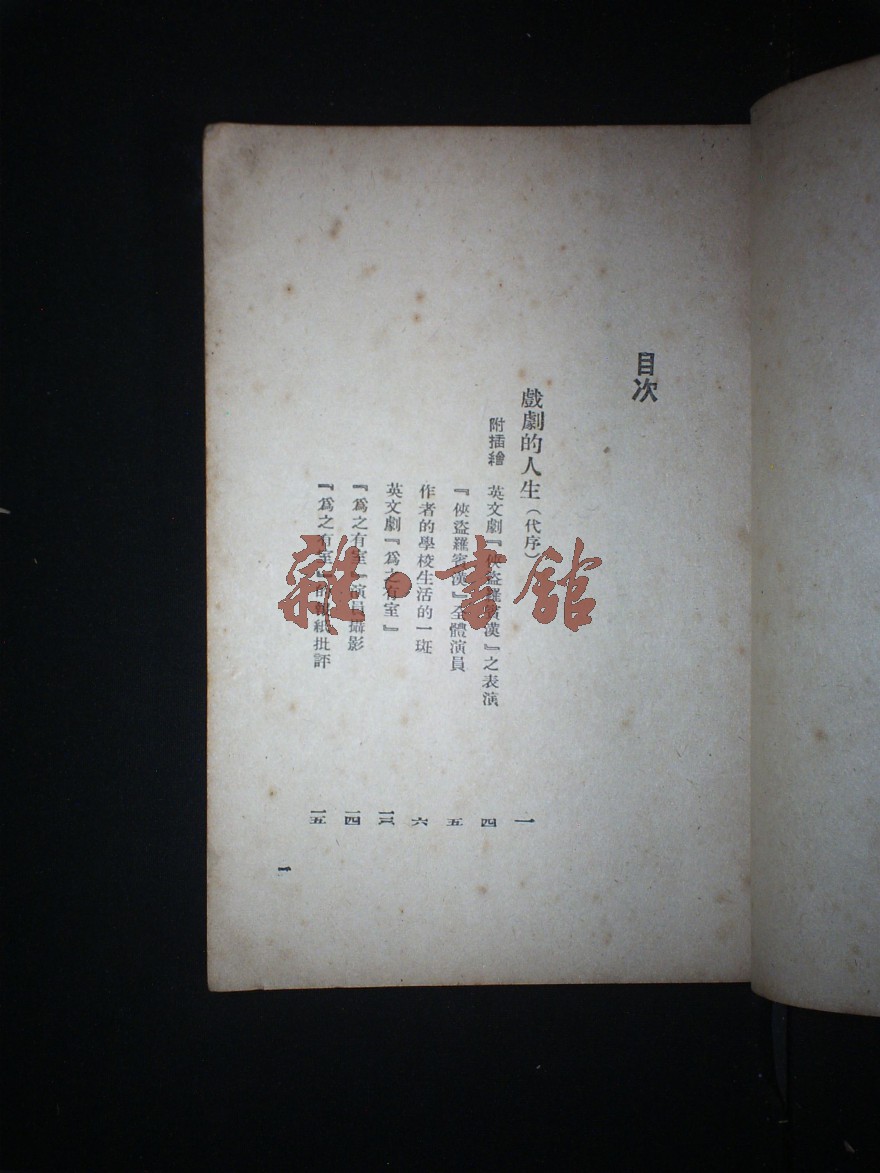 目次
戲劇的人生（代序） 一
附插繪 英文劇『俠盜羅賓漢』之表演 四
『俠盜羅賓漢』全體演員 五
作者的學校生活的一斑 六
英文劇『爲之有室』
『爲之有室』演員攝影 一四
『爲之有室』的報紙批評 一五
一
雜·書館